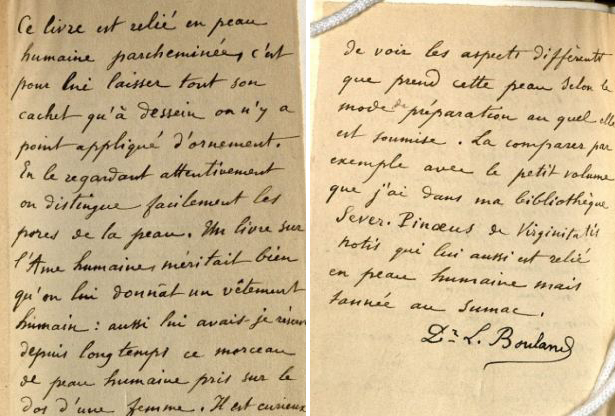 Ce livre est relié en peau
humaine parcheminée, c'est
pour lui laisser tout son
cachet qu'à dessein on n'y a
point appliqué d'ornement.
En le regardant attentivement
on distingue facilement les
pores de la peau. Un livre sur
l'Ame humaine, méritait bien
qu'on lui donnât un vêtement
humain : aussi lui avais-je réservé
depuis longtemps ce morceau
de peau humaine pris sur le
dos d'une femme. Il est curieux
de voir les aspects différents
que prend cette peau selon le
mode de préparation au quel elle
est soumise. La comparer par
exemple avec le petit volume
que j'ai dans ma bibliothèque
Sever. Pinæus de Virginitatis
notis qui lui aussi est relié
en peau humaine mais
tannée au sumac.
Dr. L. Bouland